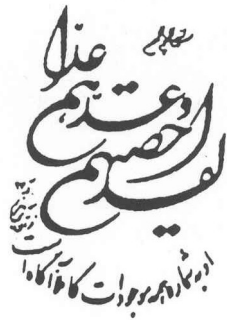 لقد احصهم
وعدهم
عدا
او به شماره همه موجودات کاملا آگاه است